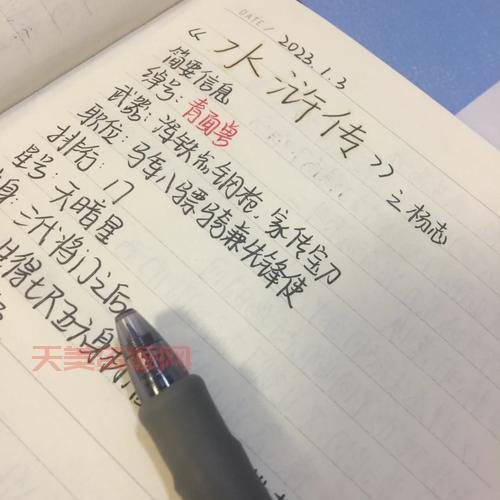 DATE / 2023.1.3
《水浒传》之杨志
简要信息
绰号：青面兽
武器：浑铁点钢枪，家传宝刀
职位：马军八骠骑兼先锋使
排行：17
星号：天暗星
身：三代将门之后
生得七尺五六身